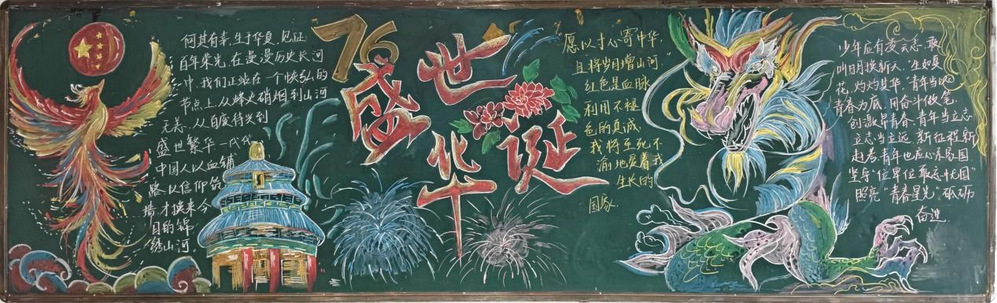 何其有幸,生于华夏,见证
百年荣光,在漫漫历史长河
中,我们正站在一个恢弘的
节点上,从烽火硝烟到山河
无恙,从百废待兴到
盛世繁华一代代
中国人以血铺
路,以信仰筑
墙,才换来今
日的锦
绣山河
76
盛世
华诞
愿以寸心寄中华,
且将岁月赠山河
红色是血脉
利用不极
色的真诚
我将至死不
渝地爱着我
生长的
国家
少年应有凌云志,敢
叫日月换新天,生如夏
花,灼灼其华,青年当以
青春为底,用奋斗做笔
创激昂青春,青年当立志
立志当立远,新征程新
赶考,青年也应心系家国
坚守“位卑位敢忘忧国”
照亮“青春星光”砥砺
奋进